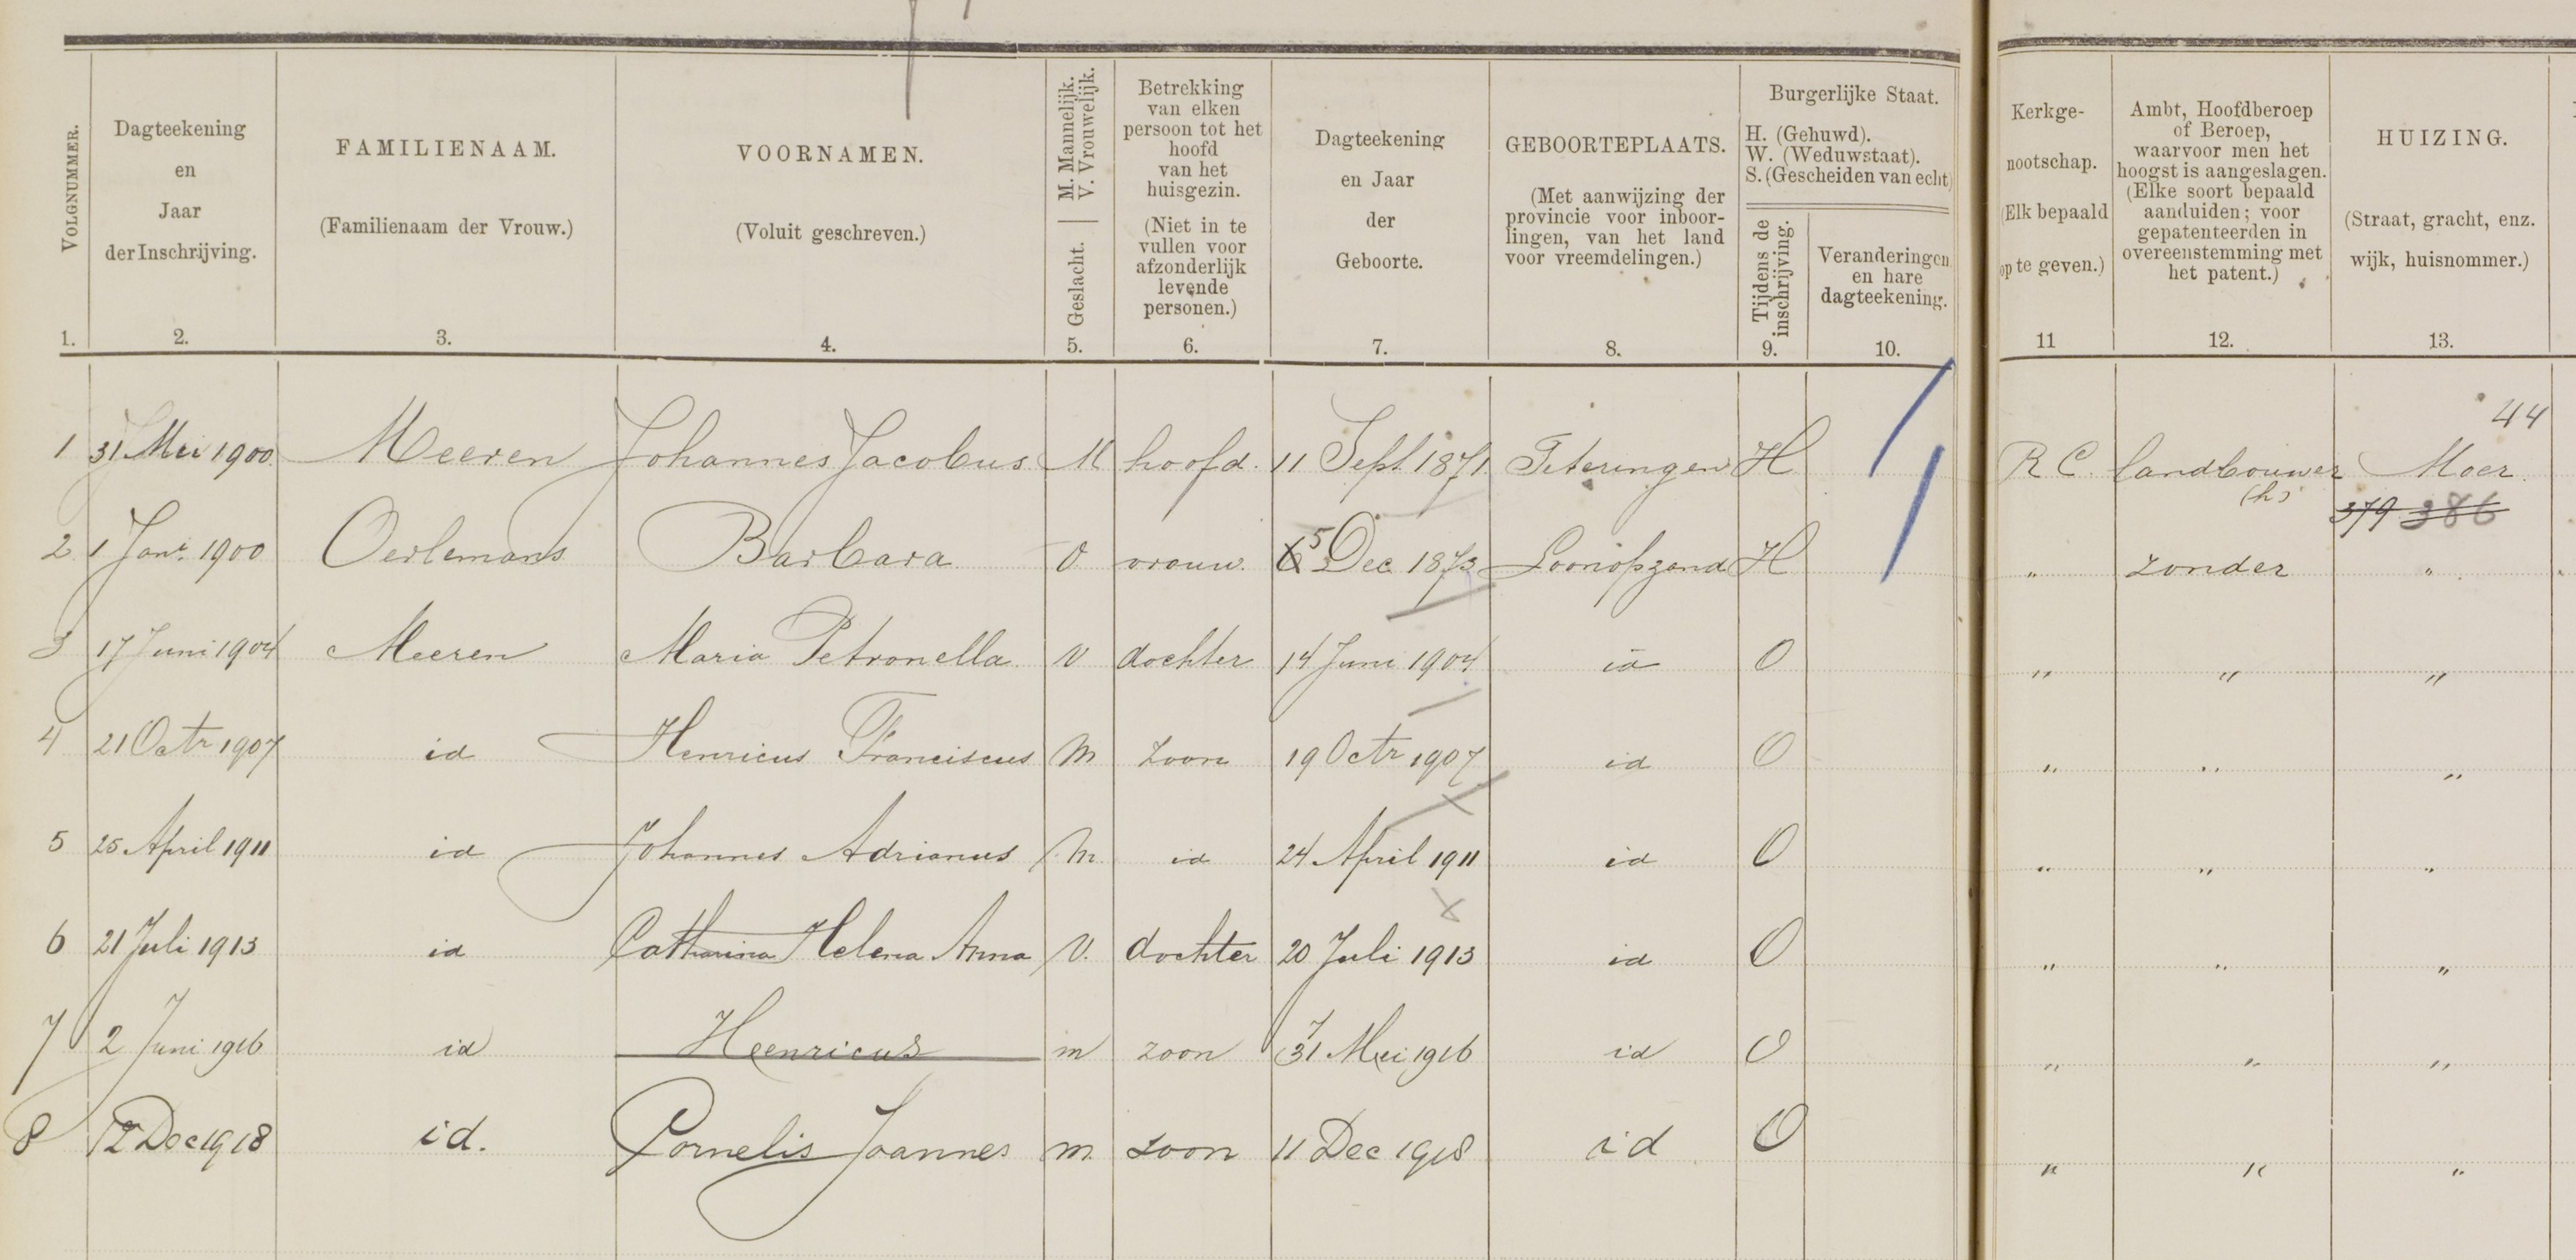 VOLGNUMMER.
Dagteekening
en
Jaar
der Inschrijving.
FAMILIENAAM.
(Familienaam der Vrouw.)
VOORNAMEN.
(Voluit geschreven.)
M. Mannelijk.
V. Vrouwelijk.
Geslacht.
Betrekking
van elken
persoon tot het
hoofd
van het
huisgezin.
(Niet in te
vullen voor
afzonderlijk
levende
personen.)
Dagteekening
en Jaar
der
Geboorte.
GEBOORTEPLAATS.
(Met aanwijzing der
provincie voor inboor-
lingen, van het land
voor vreemdelingen.)
Burgerlijke Staat.
H. (Gehuwd).
W. (Weduwstaat).
S. (Gescheiden van echt)
Tijdens de
inschrijving.
Veranderingen
en hare
dagteekening.
Kerkge-
nootschap.
(Elk bepaald
op te geven.)
Ambt, Hoofdberoep
of Beroep,
waarvoor men het
hoogst is aangeslagen.
(Elke soort bepaald
aanduiden; voor
gepatenteerden in
overeenstemming met
het patent.)
HUIZING.
(Straat, gracht, enz.
wijk, huisnommer.)
1. 2. 3. 4. 5. 6. 7. 8. 9. 10. 11 12. 13.
44
1 31 Mei 1900 Meeren Johannes Jacobus M hoofd. 11 Sept 1871 Teteringen H R C. landbouwer Moer
(h)
379 386
2 1 Jan. 1900 Oerlemans Barbara V vrouw. 5 Dec 1873 Loonopzand H " zonder "
3 17 Juni 1904 Meeren Maria Petronella V dochter 14 Juni 1904 id O " " "
4 21 Octr 1907 id Henricus Franciscus M zoon 19 Octr 1907 id O " " "
5 25 April 1911 id Johannes Adrianus M id 24 April 1911 id O " " "
6 21 Juli 1913 id Catharina Helena Anna V. dochter 20 Juli 1913 id O " " "
7 2 Juni 1916 id Heenricus m zoon 31 Mei 1916 id O " " "
8 12 Dec 1918 id. Cornelis Joannes m. zoon 11 Dec 1918 id O " " "